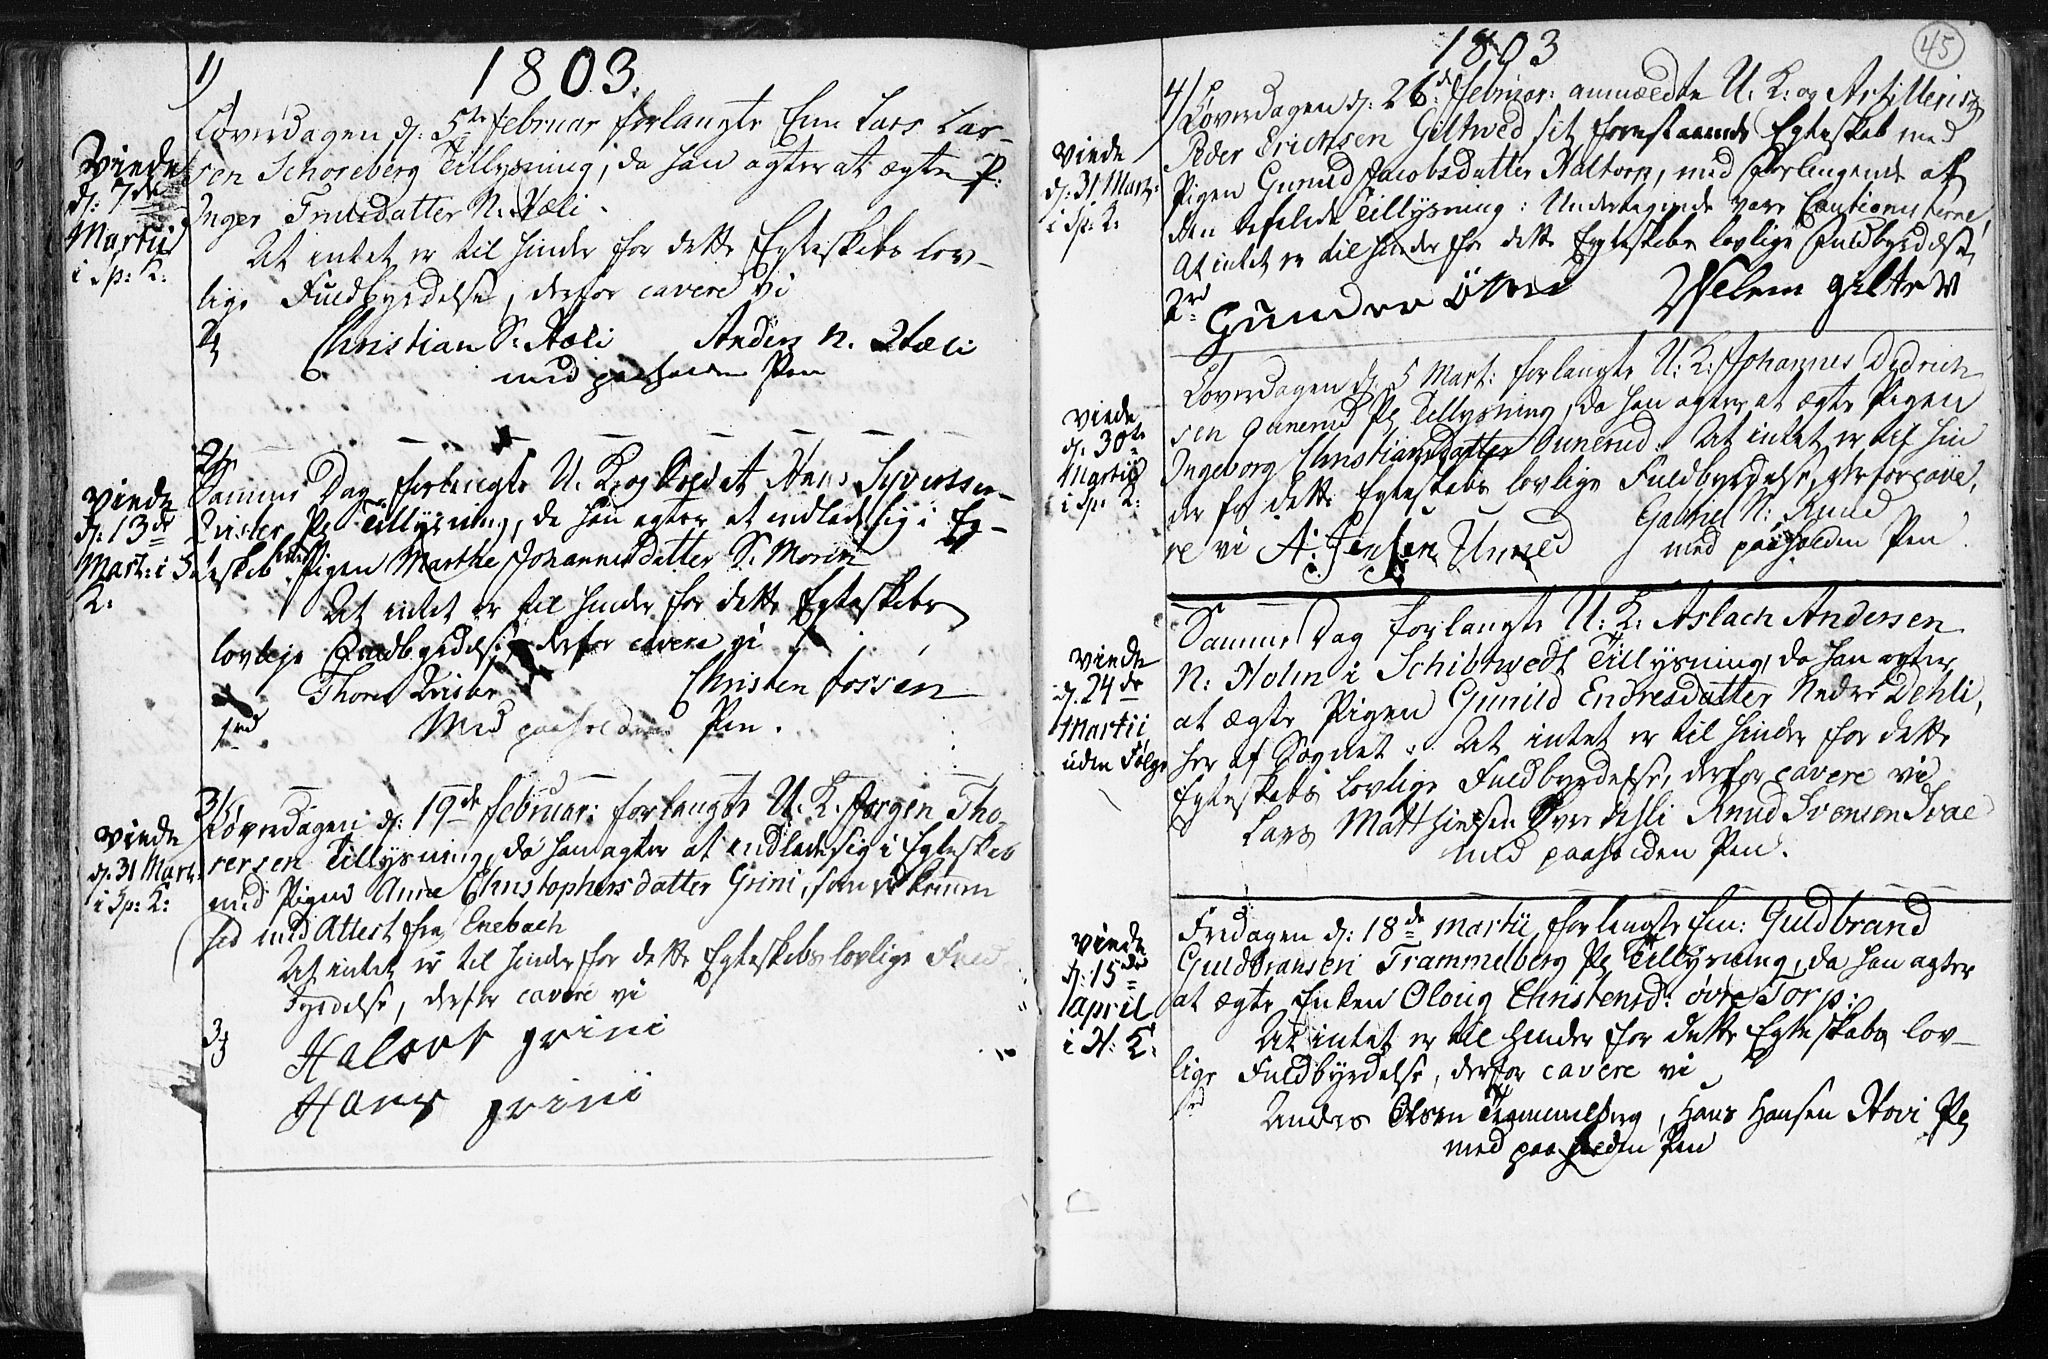 1)
1803.
Løverdagen d: 5te februar forlangte Enm Lars Lar-
sen Schoreberg Tillysning, da han agter at ægte P:
Inger Trulsdatter N: Hæli.
At intet er til hinder for dette Egteskabs lov-
lige Fuldbyrdelse, derfor cavere vi
Christian S. Hæli Anders N. Hæli
med paaholden Pen
Viede
d: 7de
Martii
i Sp: K:
2)
Samme Dag forlangte U. K. og Soldat Hans Syversen
Qvister Pl: Tillysning, da han agter at indlade sig i Eg-
teskab med Pigen Marthe Johannesdatter S. Moren
At intet er til hinder for dette Egteskabs
lovlige Fuldbyrdelse, derfor cavere vi
Thore Qvister Christen Fossen
Med paaholden Pen.
Viede
d: 13de
Mart: i S:
K:
3)
Løverdagen d: 19de februar: forlangte U. K. Jørgen Tho-
rersen Tillysning, da han agter at indlade sig i Egteskab
med Pigen Anne Christophersdatter Grini, som er kommen
hid med Attest fra Enebach
At intet er til hinder for dette Egteskabs lovlige Fuld-
byrdelse, derfor cavere vi
Halvor grini
Hans grini
Viede
d: 31 Mart:
i Sp: K:
45
1803
4)
Løverdagen d: 26de februar: anmeldte U. K: og Artillerist
Peder Erichsen Giltwed sit forestaaende Egteskab med
Pigen Gunild Jacobsdatter Haltorp, med Forlangende af
den befalede Tillysning: Undertegnede vare Cautionisterne,
At intet er til hinder for dette Egteskabs lovlige Fuldbyrdelse,
Gunder Willem giltev
Viede
d: 31 Mart:
i Sp: K:
Løverdagen d: 5 Mart: forlangte U: K: Johannes Didrich
sen Pl: Tillysning, da han agter at ægte Pigen
Ingeborg Christiansdatter Dunerud. At intet er til hin
der for dette Egteskabs lovlige Fuldbyrdelse, derfor cave,
re vi A. Jensen Gabriel N: Ruud
med paaholden Pen.
Viede
d: 30te
Martii
i Sp: K:
Samme Dag forlangte U: K: Aslach Andersen
N: Holm i Schibtwedt Tillysning, da han agter
at ægte Pigen Gunild Endresdatter Nedre Dehli,
her af Sognet. At intet er til hinder for dette
Egteskabs lovlige Fuldbyrdelse, derfor cavere vi
Lars Matthiesen Øvre Dehli Knud Svensen
med paaholden Pen.
Viede
d. 24de
Martii
uden Følge
Fredagen d: 18de Martii forlangte Enm: Guldbrand
Guldbransen Trammelberg Pl: Tillysning, da han agter
at ægte Enken Oloug Christensd: øvre Torp:
At intet er til hinder for dette Egteskabs lov-
lige Fuldbyrdelse, derfor cavere vi
Anders Olsen Trammelberg, Hans Hansen Hovi Pl:
med paaholden Pen
Viede
d: 15de
April
i H: K: